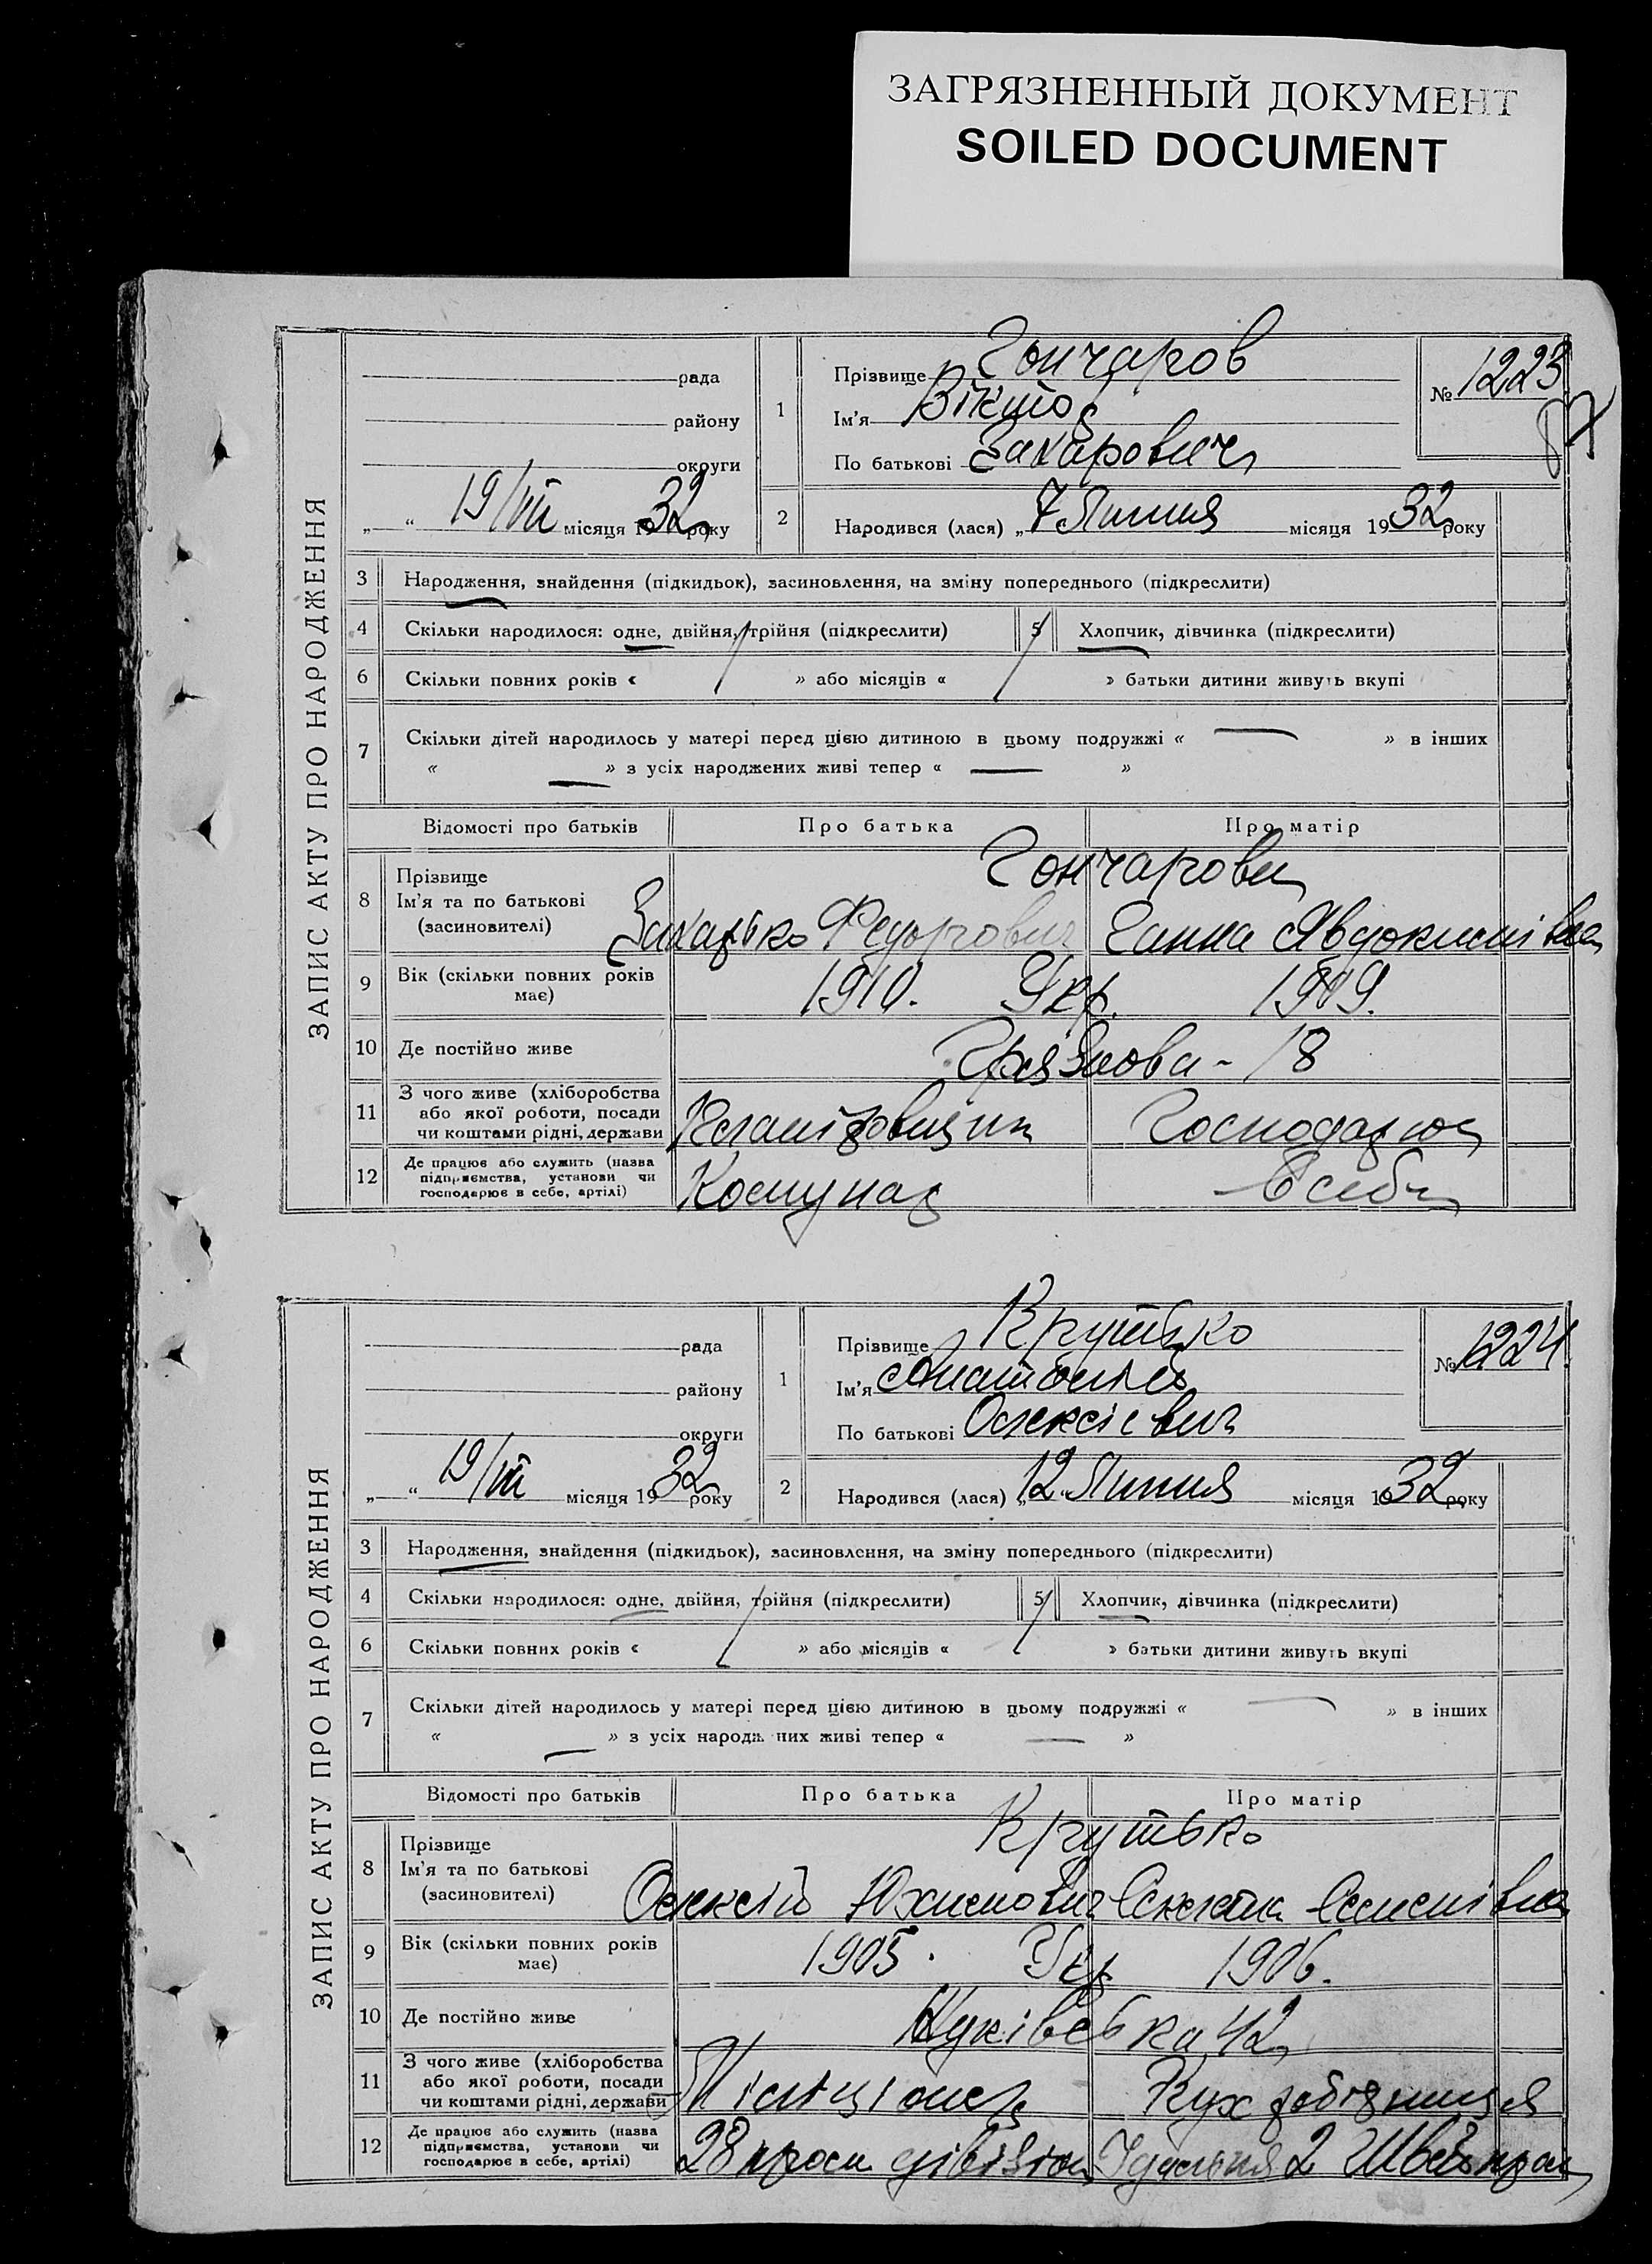 ЗАГРЯЗНЕННЫЙ ДОКУМЕНТ
SOILED DOCUMENT
ЗАПИС АКТУ ПРО НАРОДЖЕННЯ
рада
району
округи
„ “ 19/VII місяця 1932 року
1
Прізвище Гончаров
Ім'я Віктор
По батькові Захарович
№ 1223
87
2 Народився (лася) „7 Липня місяця 1932 року
3 Народження, знайдення (підкидьок), засиновлення, на зміну попереднього (підкреслити)
4 Скільки народилося: одне, двійня, трійня (підкреслити) 5 Хлопчик, дівчинка (підкреслити)
6 Скільки повних років « » або місяців « » батьки дитини живуть вкупі
7 Скільки дітей народилось у матері перед цією дитиною в цьому подружжі « — » в інших
« — » з усіх народжених живі тепер « — »
Відомості про батьків Про батька Про матір
Гончарови
8 Прізвище
Ім'я та по батькові
(засиновителі)
Захарько Федорович Ганна Явдокимівна
9 Вік (скільки повних років
має)
1910. Укр. 1909.
10 Де постійно живе Грязнова - 18
11 З чого живе (хліборобства
або якої роботи, посади
чи коштами рідні, держави
Господарює
12 Де працює або служить (назва
підприємства, установи чи
господарює в себе, артілі)
Комунар В себе
ЗАПИС АКТУ ПРО НАРОДЖЕННЯ
рада
району
округи
„ “ 19/VII місяця 1932 року
1
Прізвище Крутько
Ім'я Анатолій
По батькові Олексієвич
№ 1224
2 Народився (лася) „12 Липня місяця 1932 року
3 Народження, знайдення (підкидьок), засиновлення, на зміну попереднього (підкреслити)
4 Скільки народилося: одне, двійня, трійня (підкреслити) 5 Хлопчик, дівчинка (підкреслити)
6 Скільки повних років « » або місяців « » батьки дитини живуть вкупі
7 Скільки дітей народилось у матері перед цією дитиною в цьому подружжі « — » в інших
« — » з усіх народж них живі тепер « — »
Відомості про батьків Про батька Про матір
Крутько
8 Прізвище
Ім'я та по батькові
(засиновителі)
Олексій Юхимович Семенівна
9 Вік (скільки повних років
має)
1905. Укр 1906.
10 Де постійно живе 42
11 З чого живе (хліборобства
або якої роботи, посади
чи коштами рідні, держави
Міліціонер Кух робітниця
12 Де працює або служить (назва
підприємства, установи чи
господарює в себе, артілі)
28 дівізіон Їдальня 2 Швейпром